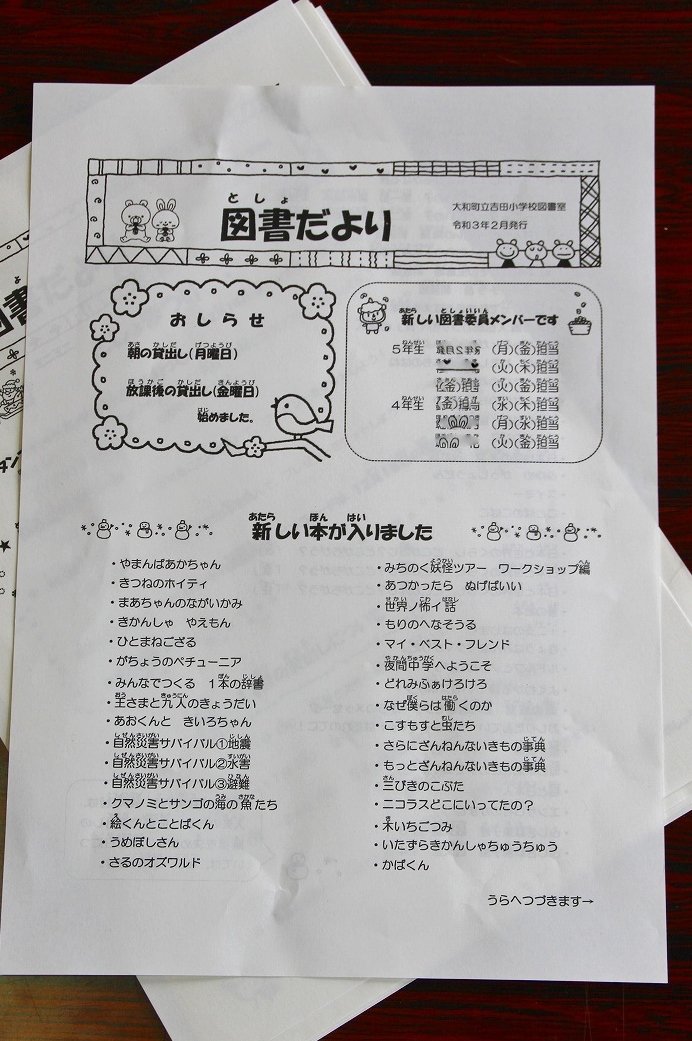 図書だより
大和町立吉田小学校図書室
令和3年2月発行
おしらせ
朝の貸出し(月曜日)
放課後の貸出し(金曜日)
始めました。
新しい図書委員メンバーです
5年生 (月)(金)担当
(火)(木)担当
(火)(金)担当
4年生 (水)(木)担当
(月)(水)担当
(火)(金)担当
新しい本が入りました
・やまんばあかちゃん
・きつねのホイティ
・まあちゃんのながいかみ
・きかんしゃ やえもん
・ひとまねござる
・がちょうのペチューニア
・みんなでつくる 1本の辞書
・王さまと九人のきょうだい
・あおくんと きいろちゃん
・自然災害サバイバル①地震
・自然災害サバイバル②水害
・自然災害サバイバル③避難
・クマノミとサンゴの海の魚たち
・絵くんとことばくん
・うめぼしさん
・さるのオズワルド
・みちのく妖怪ツアー ワークショップ編
・あつかったら ぬげばいい
・世界ノ怖イ話
・もりのへなそうる
・マイ・ベスト・フレンド
・夜間中学へようこそ
・どれみふぁけろけろ
・なぜ僕らは働くのか
・こすもすと虫たち
・さらにざんねんないきもの事典
・もっとざんねんないきもの事典
・三びきのこぶた
・ニコラスどこにいってたの?
・木いちごつみ
・いたずらきかんしゃちゅうちゅう
・かばくん
うらへつづきます→